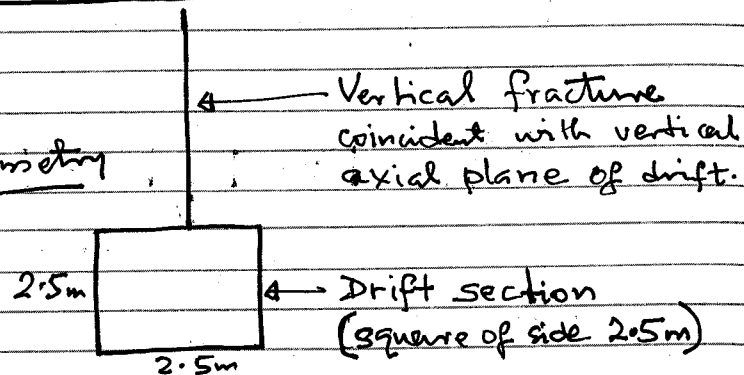 Vertical fracture
coincident with vertical
axial plane of drift.
2.5m
Drift section
(square of side 2.5m)
2.5m